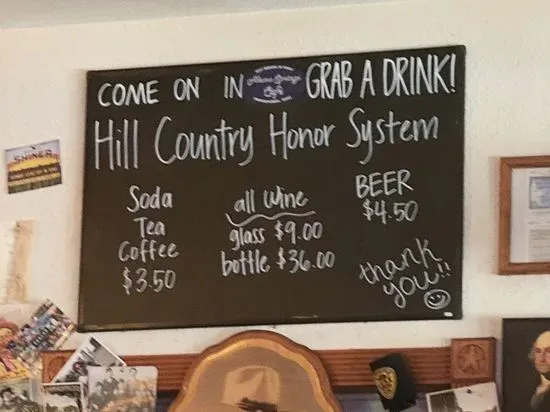 COME ON IN
Albino Springs
Cafe
GRAB A DRINK!
Hill Country Honor System
Soda
Tea
Coffee
$3.50
all wine
glass $9.00
bottle $36.00
BEER
$4.50
thank
you!!
SHINER